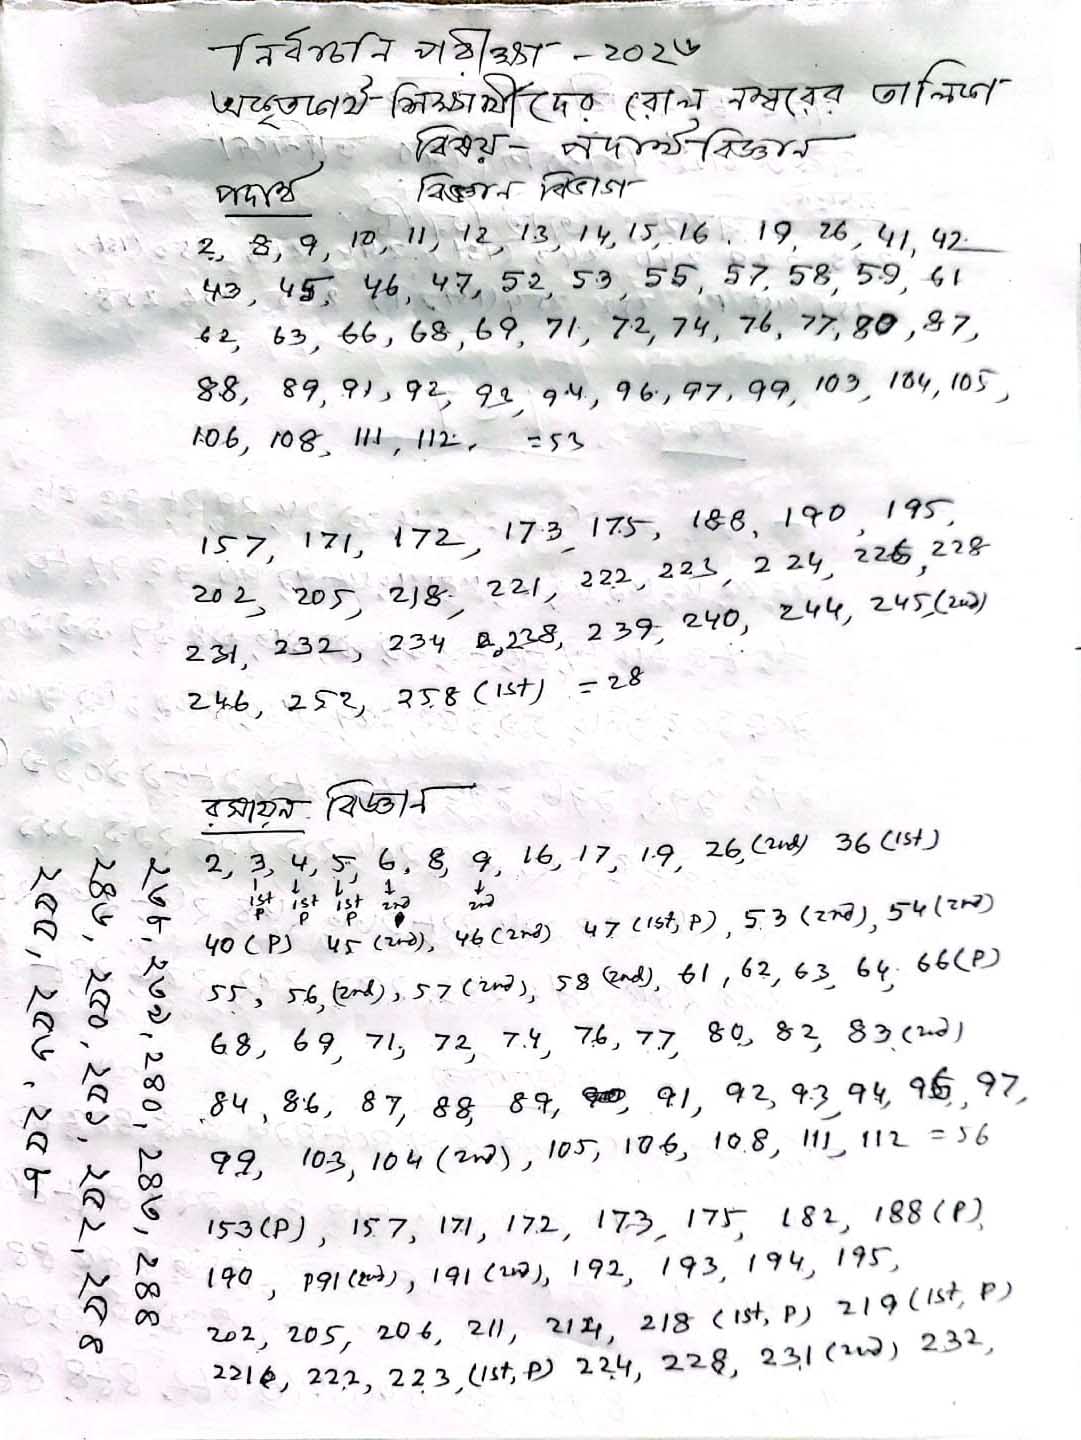 নির্বাচনি পরীক্ষা - ২০২৬
অকৃতকার্য শিক্ষার্থীদের রোল নম্বরের তালিকা
বিষয় - পদার্থবিজ্ঞান
পদার্থ বিজ্ঞান বিভাগ
2, 8, 9, 10, 11, 12, 13, 14, 15, 16, 19, 26, 41, 42
43, 45, 46, 47, 52, 53, 55, 57, 58, 59, 61
62, 63, 66, 68, 69, 71, 72, 74, 76, 77, 80, 87,
88, 89, 91, 92, 93, 94, 96, 97, 99, 103, 104, 105,
106, 108, 111, 112. = 53
157, 171, 172, 173, 175, 188, 190, 195,
202, 205, 218, 221, 222, 223, 224, 226, 228
231, 232, 234, 238, 239, 240, 244, 245 (2nd)
246, 252, 258 (1st) = 28
রসায়ন বিজ্ঞান
2, 3, 4, 5, 6, 8, 9, 16, 17, 19, 26 (2nd) 36 (1st)
1st 1st 1st 2nd 2nd
P P P
40 (P) 45 (2nd), 46 (2nd) 47 (1st, P), 53 (2nd), 54 (2nd)
55, 56, (2nd), 57 (2nd), 58 (2nd), 61, 62, 63, 64, 66 (P)
68, 69, 71, 72, 74, 76, 77, 80, 82, 83 (2nd)
84, 86, 87, 88, 89, 91, 92, 93, 94, 96, 97,
99, 103, 104 (2nd), 105, 106, 108, 111, 112 = 56
153 (P), 157, 171, 172, 173, 175, 182, 188 (P),
190, 191 (2nd), 192, 193, 194, 195,
202, 205, 206, 211, 214, 218 (1st, P) 219 (1st, P)
221, 222, 223, (1st, P) 224, 228, 231 (2nd) 232,